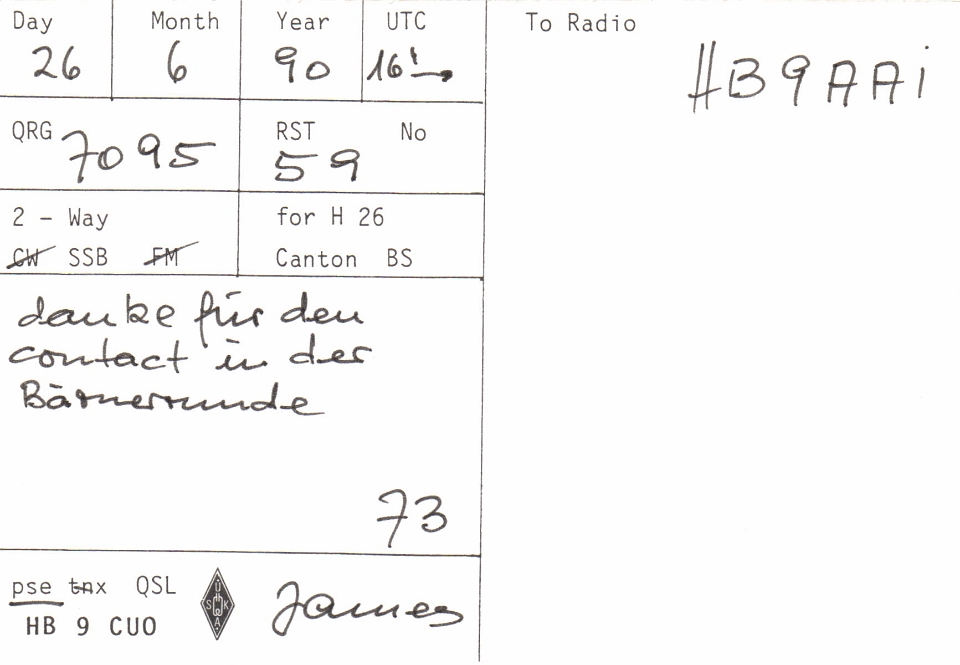 Day Month Year UTC
26 6 90 16!
To Radio
HB9AAi
QRG 7095
RST No
59
2 - Way
CW SSB FM
for H 26
Canton BS
danke für den
contact in der
Bärnerrunde
73
pse tnx QSL
HB 9 CUO
USKA
James